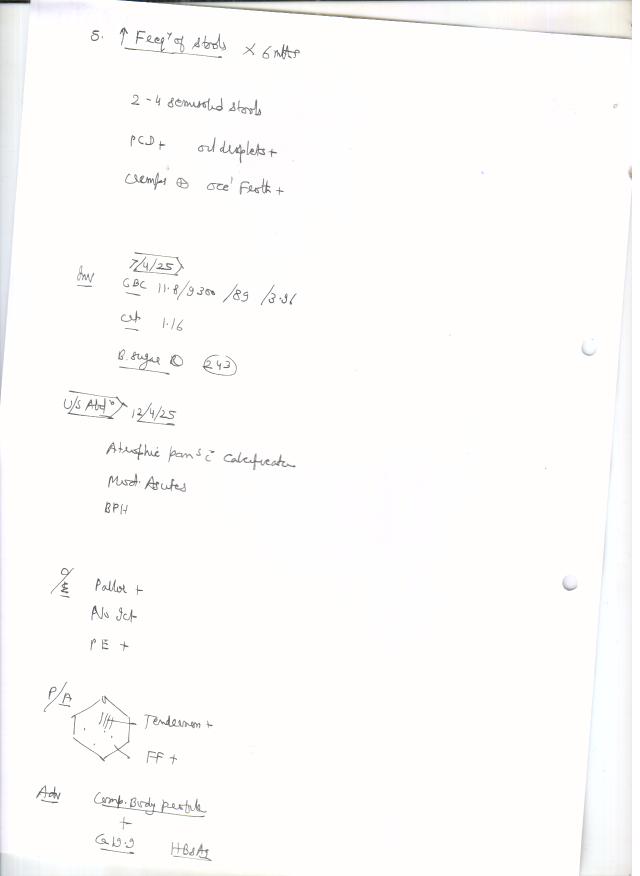 5. ↑ Feeqʸ of stools × 6 mths
2-4 semisolid stools
PCD + oil droplets +
Cramps ⊕ occˡ Froth +
7/4/25
Inv CBC 11.8/9300/89/3.96
Crt 1.16
B. Sugar R 243
U/S Abdⁿ 12/4/25
Atrophic pans c̄ Calcification
Mod. Ascites
BPH
O/E Pallor +
No Ict
PE +
P/A Tenderness +
FF +
Adv Comp. Body profile
+
Ca 19.9 HBsAg